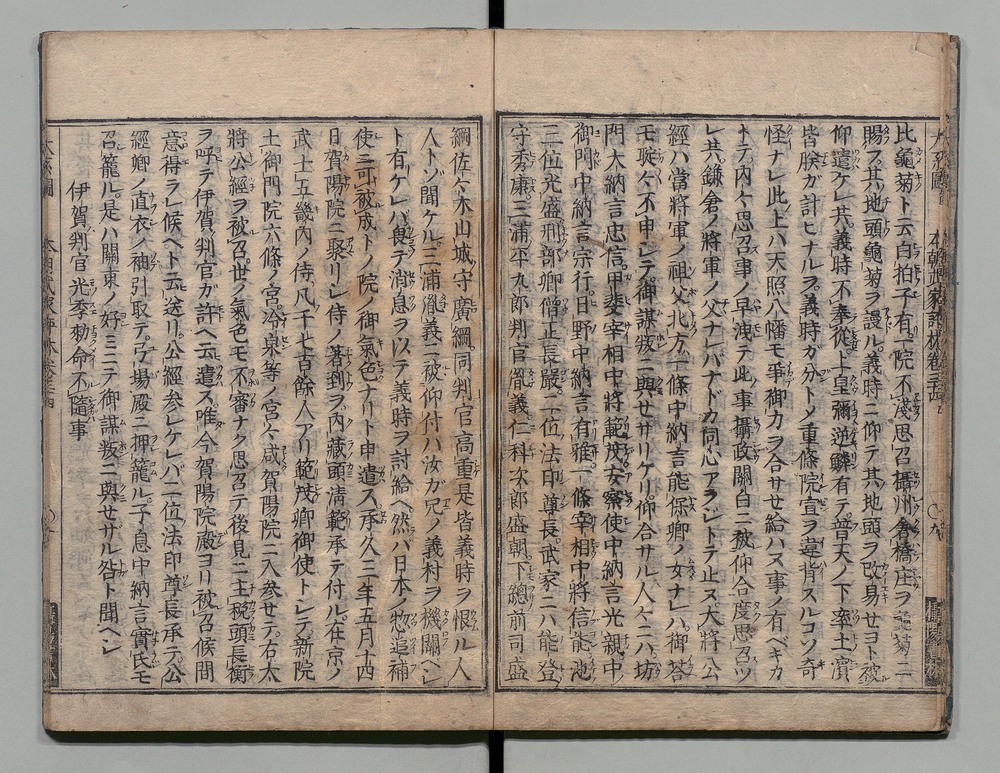 比龜菊ト云白拍子有一院不淺思召攝州倉橋庄ヲ龜菊ニ
賜フ其地頭龜菊ヲ謾ル義時ニ仰テ其地頭ヲ改易セヨト被
仰遣ケレ共義時不奉從上皇彌逆鱗有テ普天ノ下率土濱
皆朕ガ計ヒナルヲ義時ガ分トメ重條院宣ヲ違背スルコソ奇
怪ナレ此上ハ天照八幡モ爭御力ヲ合サセ給ハス事ノ有ベキカ
トテ内々思召事ノ早洩テ此事攝政關白ニ被仰合度思召ツ
レ共鎌倉ノ將軍ノ父ナレバナドカ同心アラジトテ止ヌ大將公
經ハ當將軍ノ祖父北方一條中納言能保卿ノ女ナレハ御答
モ聢々不申シテ御謀叛ニ與セサリケリ仰合サル人々ニハ坊
門大納言忠信甲斐宰相中將範茂安察使中納言光親中
御門中納言宗行日野中納言有雅一條宰相中將信能池
三位光盛刑部卿僧正長嚴二位法印尊長武家ニハ能登
守秀康三浦平九郎判官胤義仁科次郎盛朝下總前司盛
綱佐々木山城守廣綱同判官高重是皆義時ヲ恨ル人
人トソ聞ケル三浦胤義ニ被仰付ハ汝ガ兄ノ義村ヲ機關ヘシ
ト有ケレハ畏テ消息ヲ以テ義時ヲ討給ヘ然バ日本ノ惣追補
使ニ可被成トノ院ノ御氣色ナリト申遣ス承久三年五月十四
日賀陽院ニ聚リシ侍ノ著到ヲ内藏頭清範承テ付ル在京ノ
武士五畿内ノ侍凡一千七百餘人アリ範茂卿御使トシテ新院
土御門院六條ノ宮冷泉等ノ宮々咸賀陽院ニ入參セラ右太
將公經ヲ被召世ノ氣色モ不審ナク思召テ後見ニ主税頭長衡
ヲ呼テ伊賀判官ガ許ヘ云遣ス唯今賀陽院殿ヨリ被召候間
意得ラレ候ヘト云送リ公經參レケレバ二位法印尊長承テ公
經卿ノ直衣ノ袖引取テ弓場殿ニ押籠ル子息中納言實氏モ
召籠ル是ハ關東ノ好ミニテ御謀叛ニ與セサル咎ト聞ヘシ
伊賀判官光季勅命不隨事